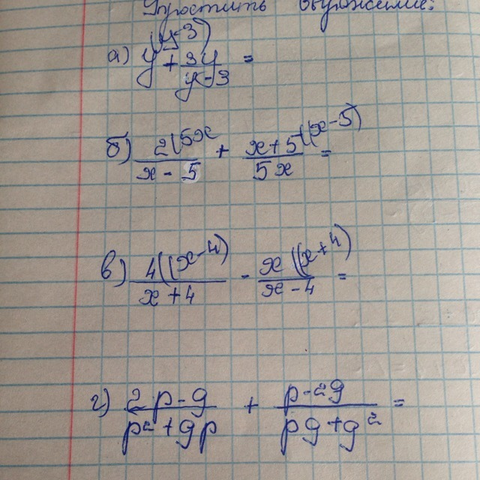 Упростить выражение:
а) y(y-3) + 3y/y-3 =
б) 2(5x/x-5 + x+5((x-5)/5x =
в) 4((x-4)/x+4 - x((x+4)/x-4 =
г) 2p-g/p²+gp + p-2g/pg+g² =